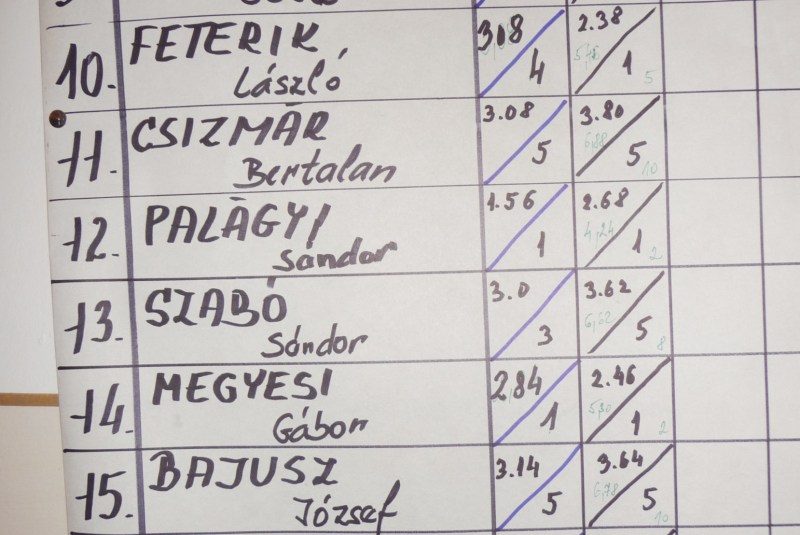 10. FETERIK 3.18 2.38
László 4 1 5
11. CSIZMÁR 3.08 3.80
6,88
Bertalan 5 5 10
12. PALÁGYI 1.56 2.68
4,24
Sándor 1 1 2
13. SZABÓ 3.0 3.62
6,62
Sándor 3 5 8
14. MEGYESI 2.84 2.46
5,30
Gábor 1 1 2
15. BAJUSZ 3.14 3.64
6,78
József 5 5 10